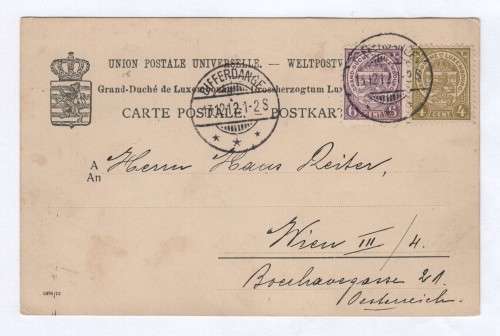 UNION POSTALE UNIVERSELLE. — WELTPOSTV
Grand-Duché de Luxembourg. Grossherzogtum Lux
CARTE POSTALE. POSTKAR
DIFFERDANGE
13.12.12.1-2S
6 CENTS
4 CENTS 4
A
An
Herrn Hans Reiter,
Wien III/4.
Boerhavegasse 21.
Oesterreich.